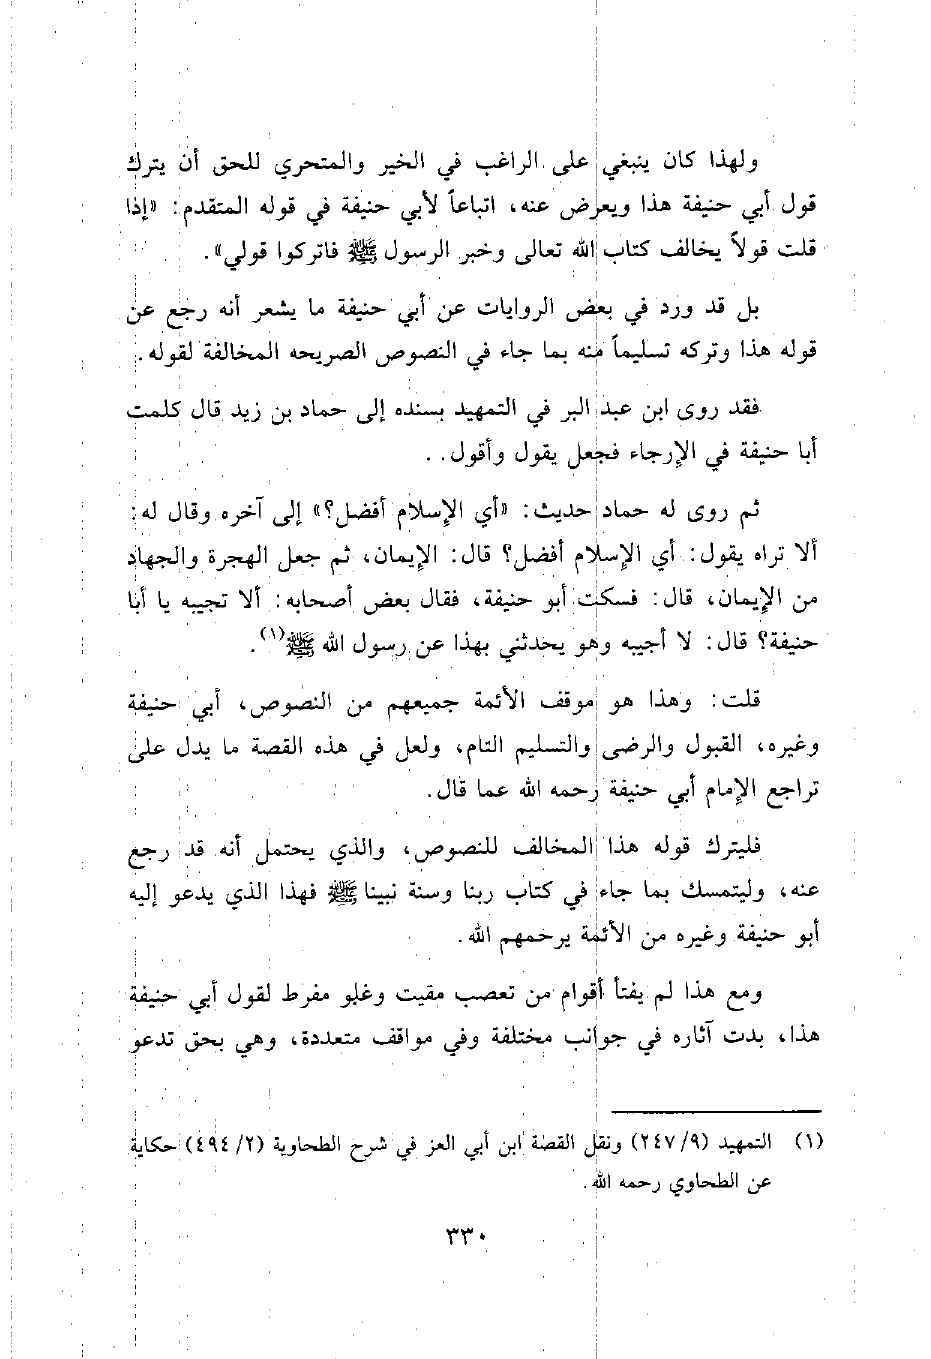 ولهذا كان ينبغي على الراغب في الخير والمتحري للحق أن يترك
قول أبي حنيفة هذا ويعرض عنه، اتباعاً لأبي حنيفة في قوله المتقدم: «إذا
قلت قولاً يخالف كتاب الله تعالى وخبر الرسول ﷺ فاتركوا قولي».
بل قد ورد في بعض الروايات عن أبي حنيفة ما يشعر أنه رجع عن
قوله هذا وتركه تسليماً منه بما جاء في النصوص الصريحه المخالفة لقوله.
فقد روى ابن عبد البر في التمهيد بسنده إلى حماد بن زيد قال كلمت
أبا حنيفة في الإرجاء فجعل يقول وأقول. .
ثم روى له حماد حديث: «أي الإسلام أفضل؟» إلى آخره وقال له:
ألا تراه يقول: أي الإسلام أفضل؟ قال: الإيمان، ثم جعل الهجرة والجهاد
من الإيمان، قال: فسكت أبو حنيفة، فقال بعض أصحابه: ألا تجيبه يا أبا
حنيفة؟ قال: لا أجيبه وهو يحدثني بهذا عن رسول الله ﷺ(١).
قلت: وهذا هو موقف الأئمة جميعهم من النصوص، أبي حنيفة
وغيره، القبول والرضى والتسليم التام، ولعل في هذه القصة ما يدل على
تراجع الإمام أبي حنيفة رحمه الله عما قال.
فليترك قوله هذا المخالف للنصوص، والذي يحتمل أنه قد رجع
عنه، وليتمسك بما جاء في كتاب ربنا وسنة نبينا ﷺ فهذا الذي يدعو إليه
أبو حنيفة وغيره من الأئمة يرحمهم الله.
ومع هذا لم يفتأ أقوام من تعصب مقيت وغلو مفرط لقول أبي حنيفة
هذا، بدت آثاره في جوانب مختلفة وفي مواقف متعددة، وهي بحق تدعو
(١) التمهيد (٢٤٧/٩) ونقل القصة ابن أبي العز في شرح الطحاوية (٤٩٤/٢) حكاية
عن الطحاوي رحمه الله.
٣٣٠